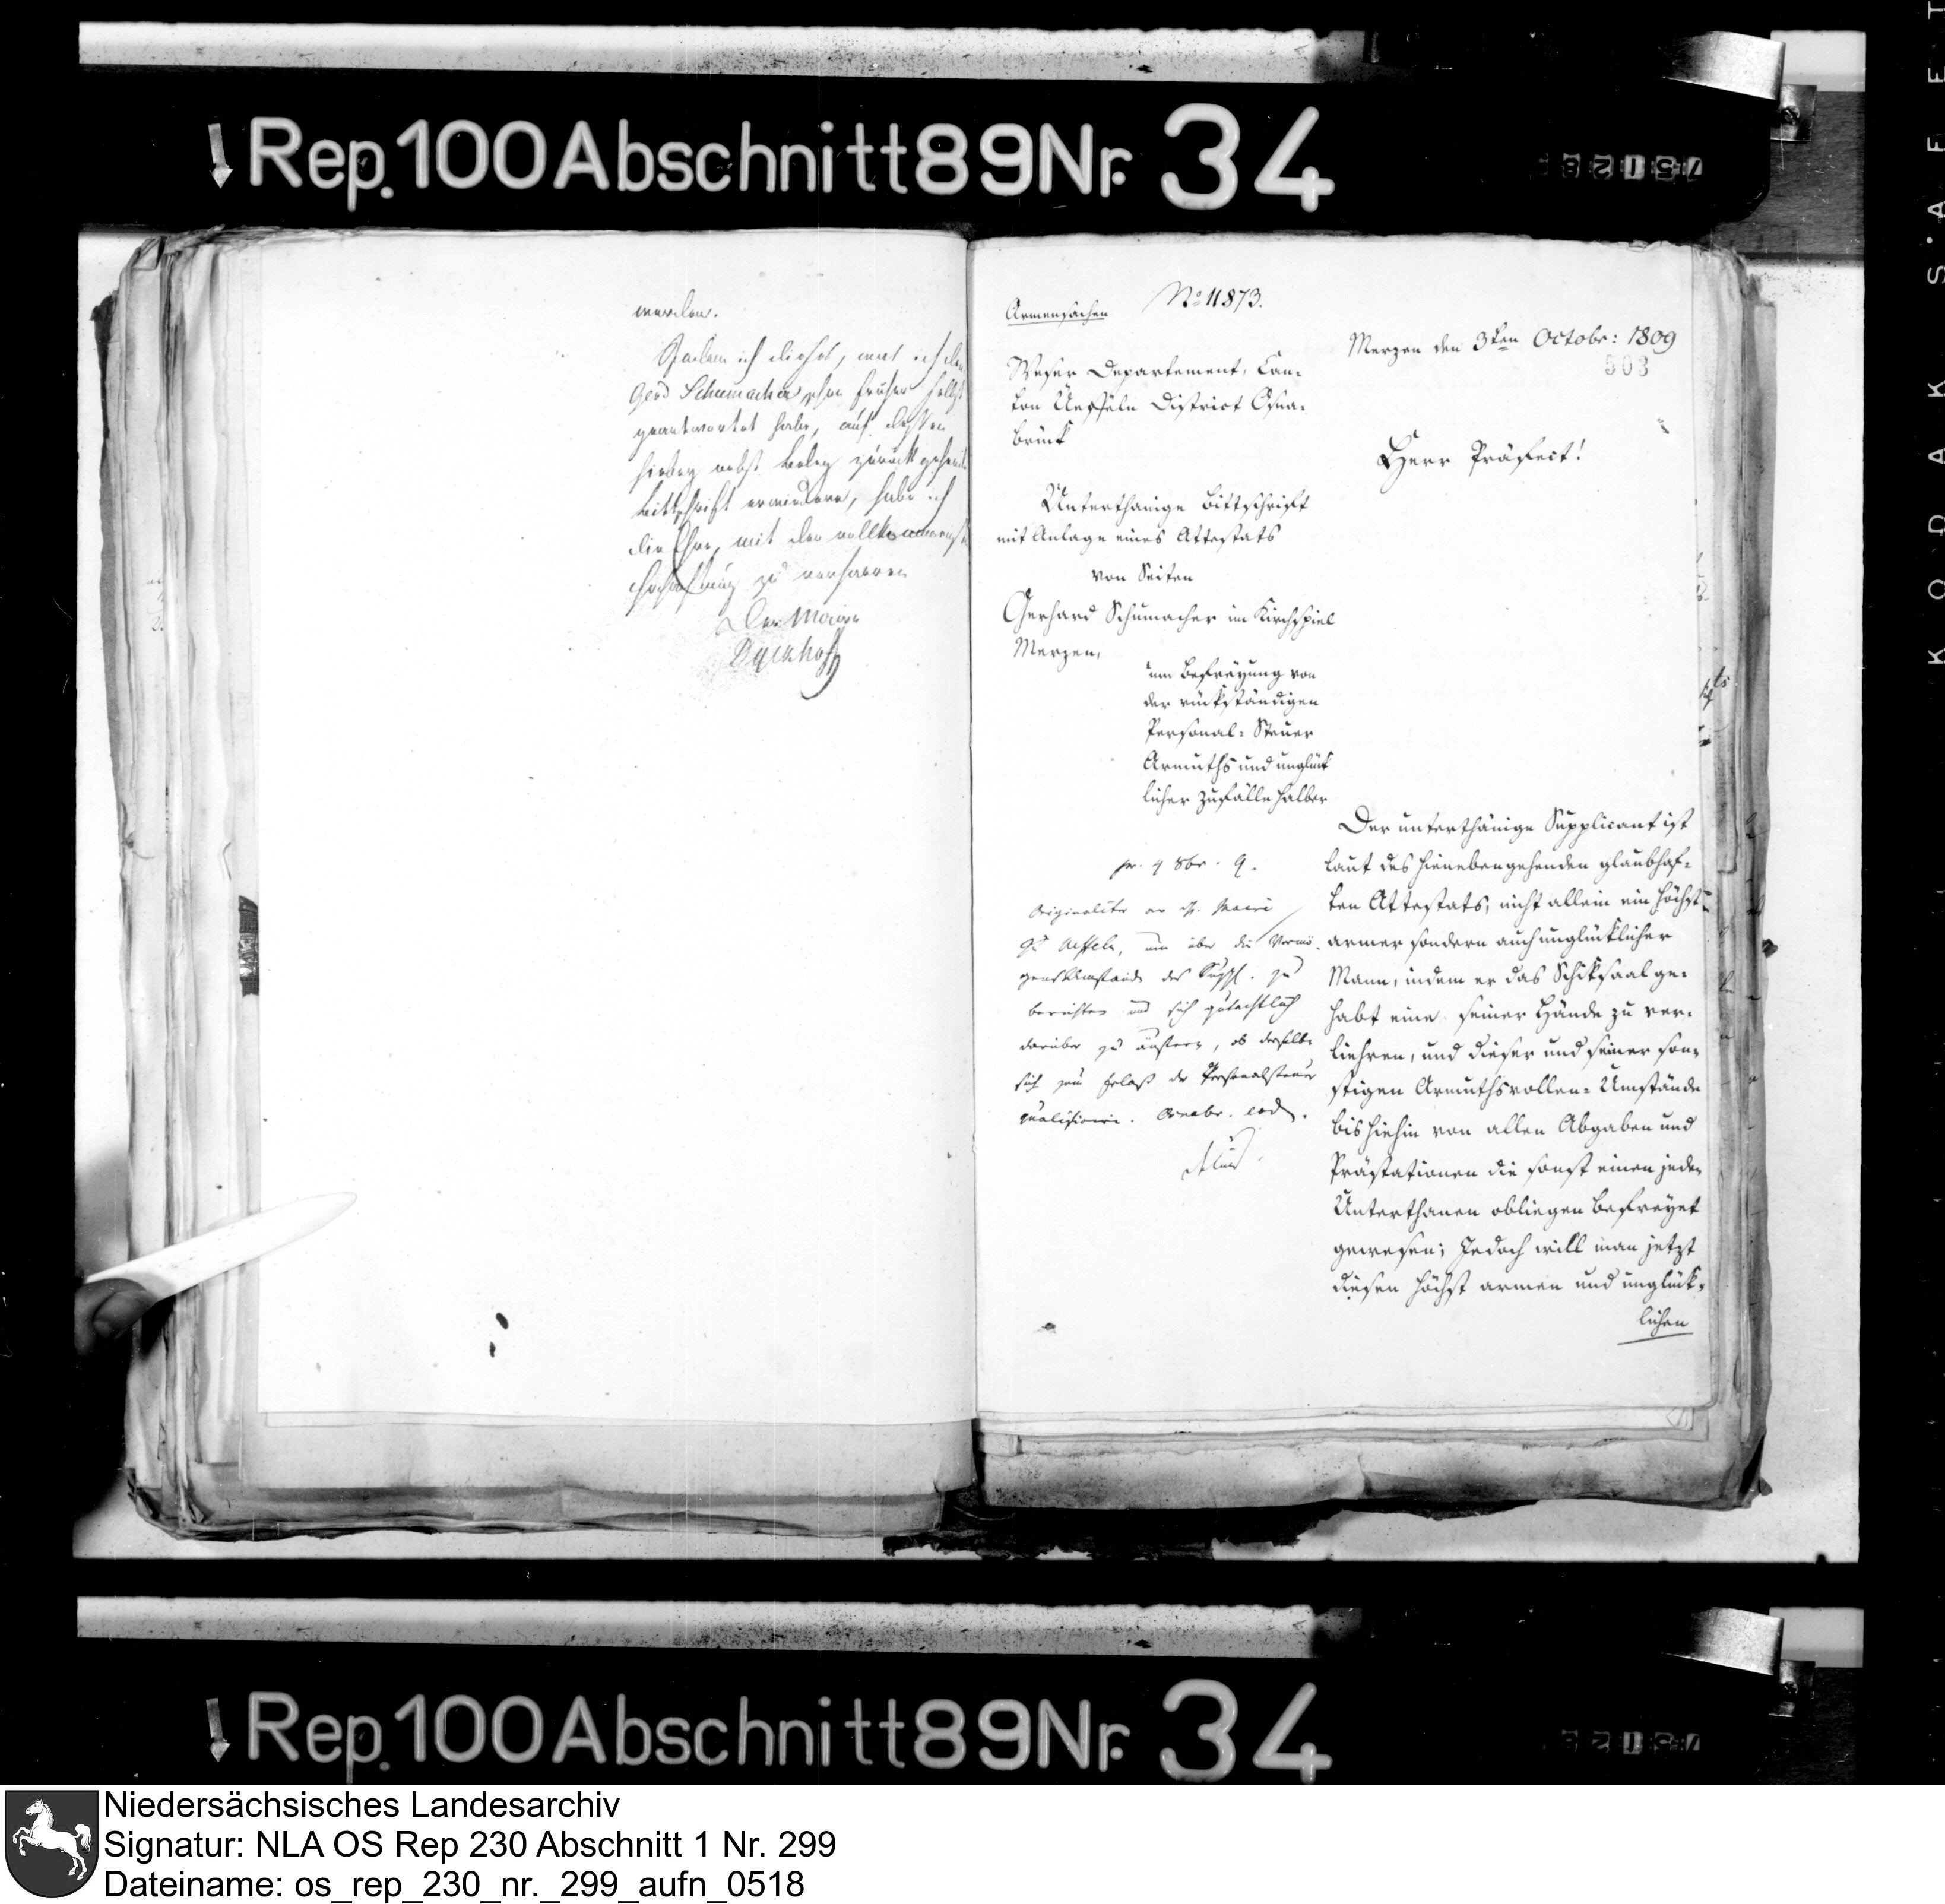 Rep. 100 Abschnitt 89 Nr. 34
werden.
Indem ich dieses, was ich dem
Gerd Schumacher schon früher selbst
geantwortet habe, auf dessen
hiebey nebst Beleg zurück gehende
Bittschrift erwiedere, habe ich
die Ehre, mit der vollkommensten
Hochachtung zu verharren
Der Maire
Armensachen
No 11873.
Merzen den 3ten Octobr: 1809
503
Weser Departement, Can-
ton Ueffeln District Osna-
brück
Herr Präfect!
Unterthänige Bittschrift
mit Anlage eines Attestats
von Seiten
Gerhard Schumacher im Kirchspiel
Merzen,
um Befreyung von
der rückständigen
Personal-Steuer
Armuths und unglück
licher Zufälle halber
pr. 4 8br. 9.
Originaliter an H. Maire
zu Ueffeln, um über die Vermö-
gensUmstände des Suppl. zu
berichten und sich gutachtlich
darüber zu äußern, ob derselbe
sich zum Erlaß der Personalsteuer
qualificire. Osnabr. eod.
Der unterthänige Supplicant ist
laut des hienebengehenden glaubhaf-
ten Attestats, nicht allein ein höchst
armer sondern auch unglücklicher
Mann, indem er das Schiksaal ge-
habt eine seiner Hände zu ver-
liehren, und dieser und seiner son-
stigen Armuthsvollen-Umstände
bis hiehin von allen Abgaben und
Prästationen die sonst einen jeden
Unterthanen obliegen befreyet
gewesen; Jedoch will man jetzt
diesen höchst armen und unglück-
lichen
Rep. 100 Abschnitt 89 Nr. 34
KODAK SAFET
Niedersächsisches Landesarchiv
Signatur: NLA OS Rep 230 Abschnitt 1 Nr. 299
Dateiname: os_rep_230_nr._299_aufn_0518